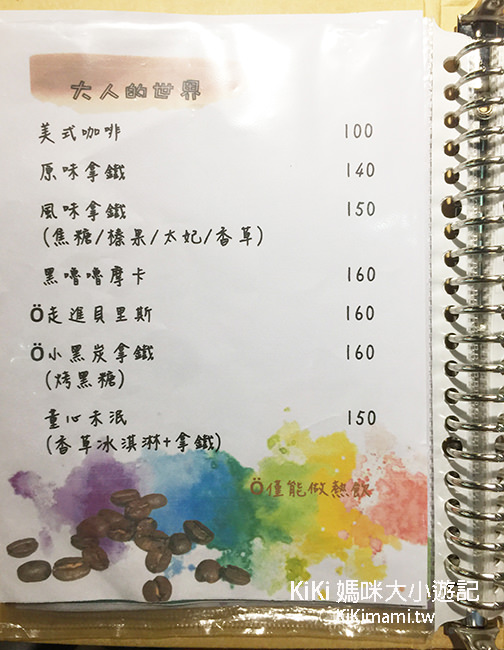 大人的世界
美式咖啡 100
原味拿鐵 140
風味拿鐵 150
(焦糖/榛果/太妃/香草)
黑嚕嚕摩卡 160
Ö走進貝里斯 160
Ö小黑炭拿鐵 160
(烤黑糖)
童心未泯 150
(香草冰淇淋+拿鐵)
Ö僅能做熱飲
KiKi 媽咪大小遊記
KiKimami.tw